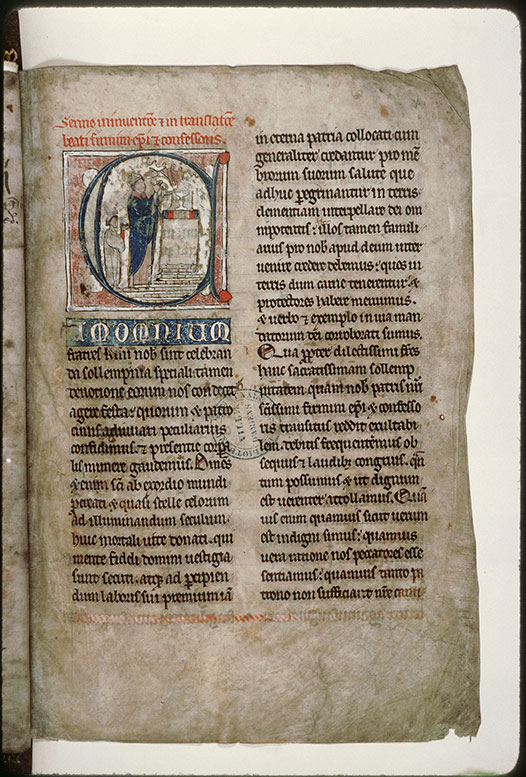 Sermo in inuentōe ⁊ in translatōe
beati firmini ep̄i ⁊ confessoris.
CUM OMNIUM
fratres km̄i nob̄ sint celebran
da sollempnia speciali tamen
deuotione eorum nos condecet
agere festa: quorum ⁊ patro
ciniis adiuuari peculiarius
confidimus: ⁊ presentie corpa
lis munere gaudemus. Om̄es
⁊ enim sc̄i ab exordio mundi
⁊ quasi stelle celorum
ad illuminandum seculum
huic mortali uite donati. qui
mente fideli domini uestigia
sunt secuti. atq; ad percipien
dum laboris sui premium iā
in eterna patria collocati cum
generaliter credantur pro mē
brorum suorum salute que
adhuc peregrinantur in terris
clementiam interpellare dei om
nipotentis: illos tamen famili
arius pro nob̄ apud deum inter
uenire credere debemus: quos in
terris dum carne tenerentur: ⁊
protectores habere meruimus.
⁊ uerbo ⁊ exemplo in uia man
datorum dei corroborati sumus.
Qua propter dilectissimi fr̄es
hanc sacratissimam sollemp
nitatem. quam nob̄ patris nr̄i
sc̄issimi firmini ep̄i ⁊ confesso
ris transitus reddit exultabi
lem. debitis frequentemus ob
sequiis ⁊ laudib; congruis. qn̄
tum possumus ⁊ ut dignum
est uenenter attollamus. Quā
uis enim quamuis sicut uerum
est indigni simus: quamuis
uera ratione nos peccatores esse
sentiamus: quamuis tanto pa
trono non sufficiant nr̄e